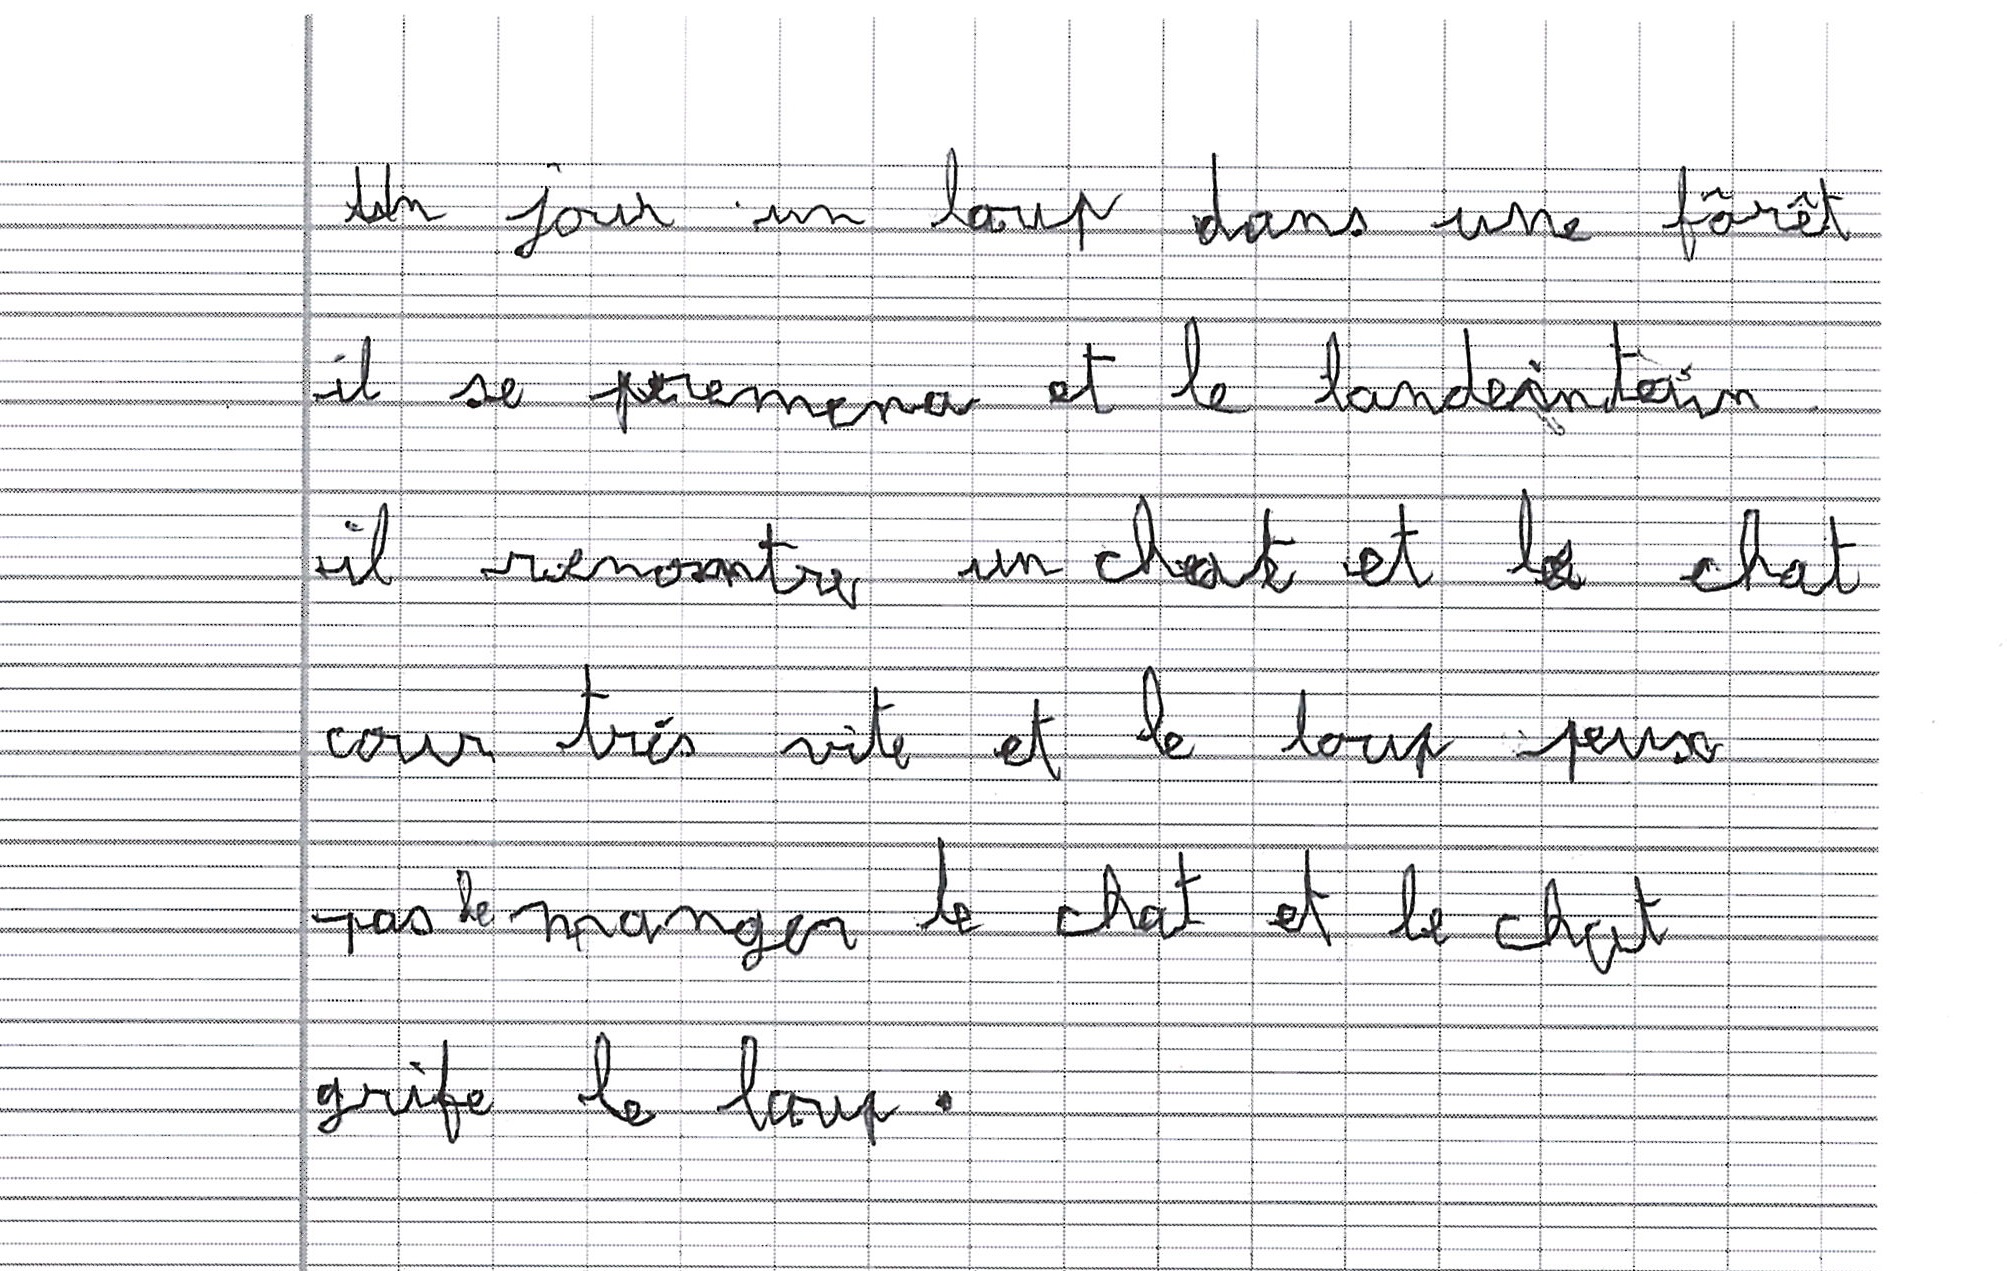 Un jour un loup dans une fôrêt
il se premena et le landeintain
il renontre un chat et le chat
cour trés vite et le loup peux
pas le manger le chat et le chat
grife le loup.